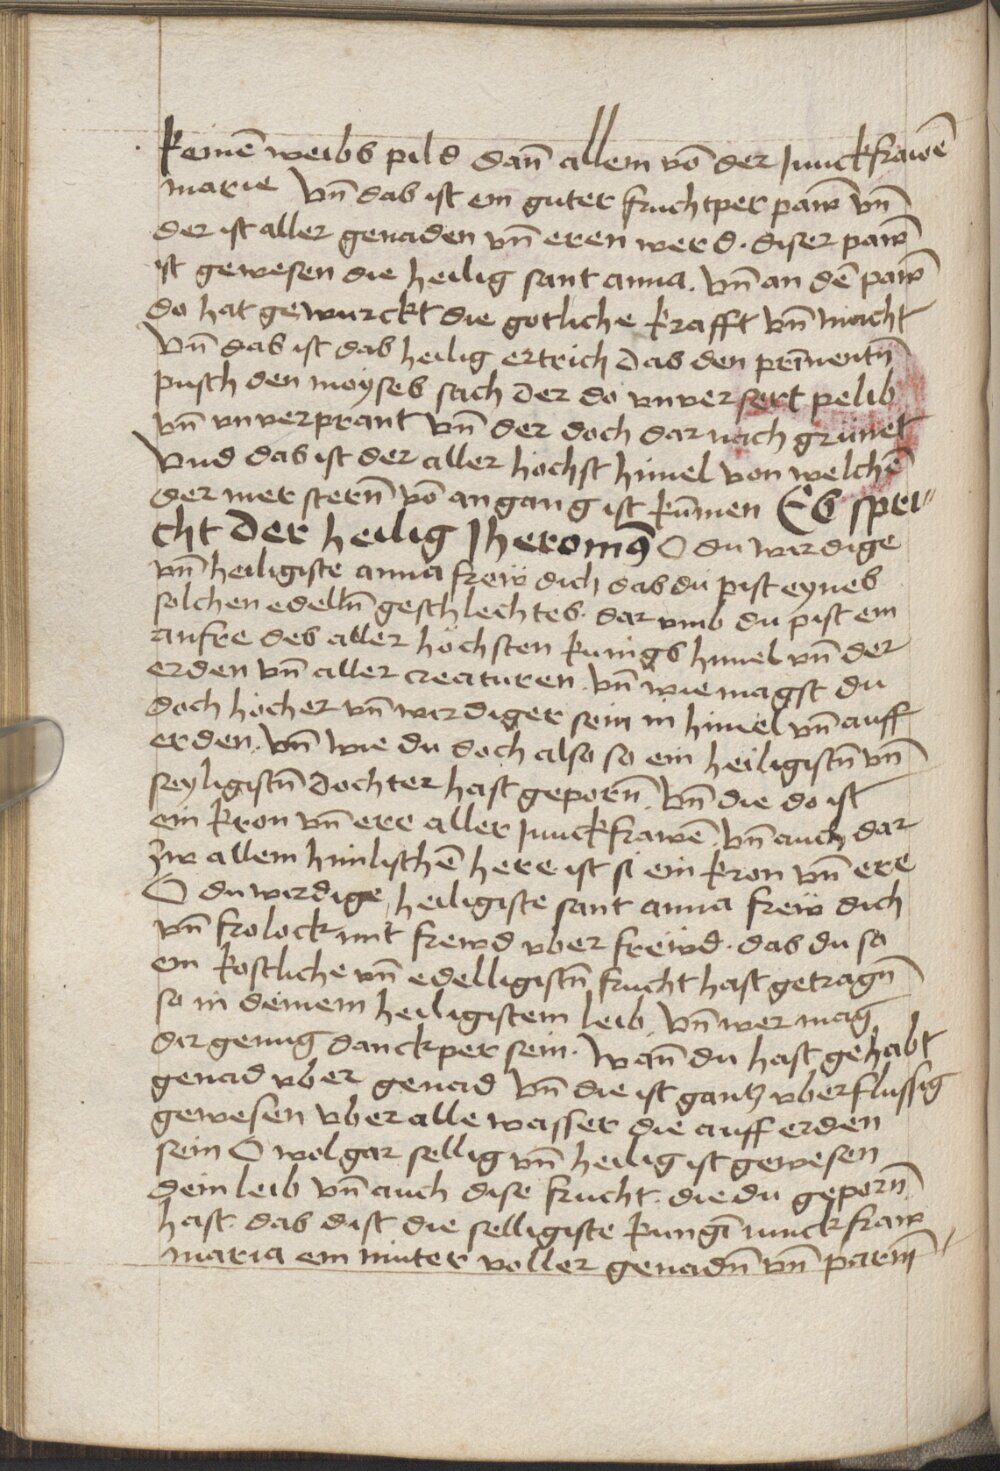 keinē weibs pild dan̄ allein vō der Junckfrawē
marie vn̄ das ist ein guter fruchtper paw̄ vn̄
der ist aller genaden vn̄ eren werd. diser paw̄
ist gewesen die heilig sant anna. vn̄ an dē paw̄
do hat gewurckt die gotliche krafft vn̄ macht
vn̄ das ist das heilig ertrich das den prīnentn̄
pusch den moyses sach der do vnversert pelib
vn̄ vnverprant vn̄ der doch dar nach grünet
vnd das ist der aller hochst himel von welchē
der mer stern̄ vō angang ist kūmen Es spri
cht der heilig Jheronimꝯ O du wirdige
vn̄ heiligiste anna frew dich das du pist eynes
solchen edelln̄ geschlechtes. dar vmb du pist ein
anfre des aller höchsten kunigs himel vn̄ der
erden vn̄ aller creaturen. vn̄ wie magst du
doch höcher vn̄ wirdiger sein in himel vn̄ auff
erden. vn̄ wie du doch also so ein heiligistn̄ vn̄
seyligistn̄ dochter hast geporn̄. vn̄ die do ist
ein kron vn̄ ere aller Junckfrawē vn̄ auch dar
zw allem himlischē here ist si ein kron vn̄ ere
O du wirdige heiligiste sant anna frew dich
vn̄ frolock mit frewd vber frewd. das du so
ein kostliche vn̄ edelligistn̄ frucht hast getragn̄
so in deinem heiligistem leib vn̄ wer mag
dir genug danckper sein. wan̄ du hast gehabt
genad vber genad vn̄ die ist gantz vberflussig
gewesen vber alle wasser die auff erden
sein O wol gar sellig vn̄ heilig ist gewesen
dein leib vn̄ auch dise frucht die du geporn̄
hast. das dist die selligiste kungī iunckfraw
maria ein muter voller genadn̄ vn̄ parm̄